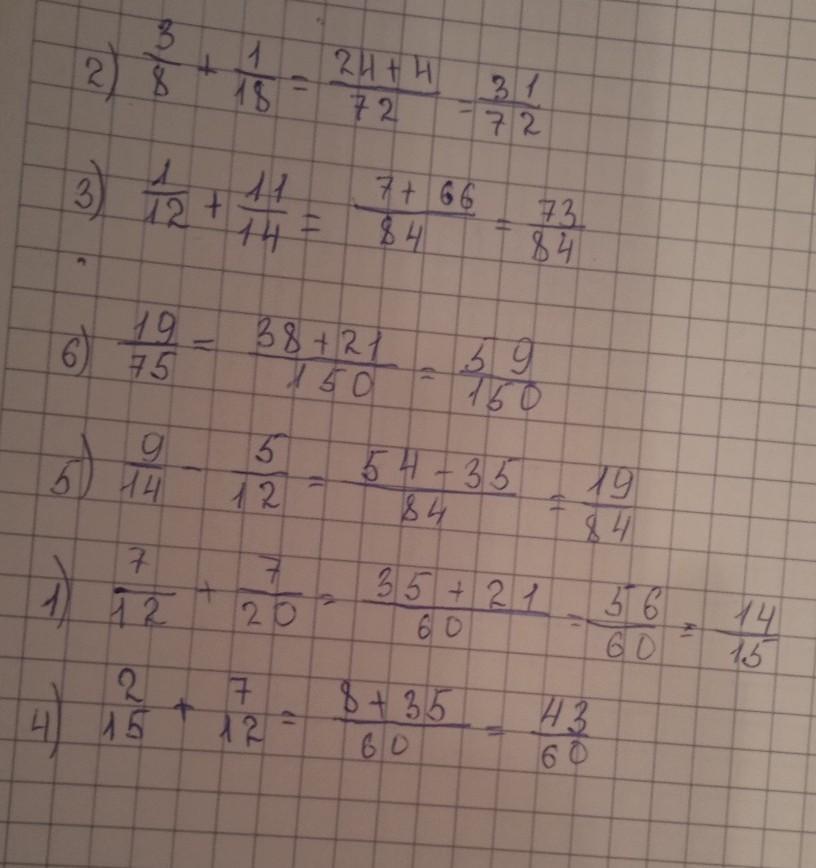 2) 3/8 + 1/18 = 24+4/72 = 31/72
3) 1/12 + 11/14 = 7+66/84 = 73/84
6) 19/75 = 38+21/150 = 59/150
5) 9/14 - 5/12 = 54-35/84 = 19/84
1) 7/12 + 7/20 = 35+21/60 = 56/60 = 14/15
4) 2/15 + 7/12 = 8+35/60 = 43/60